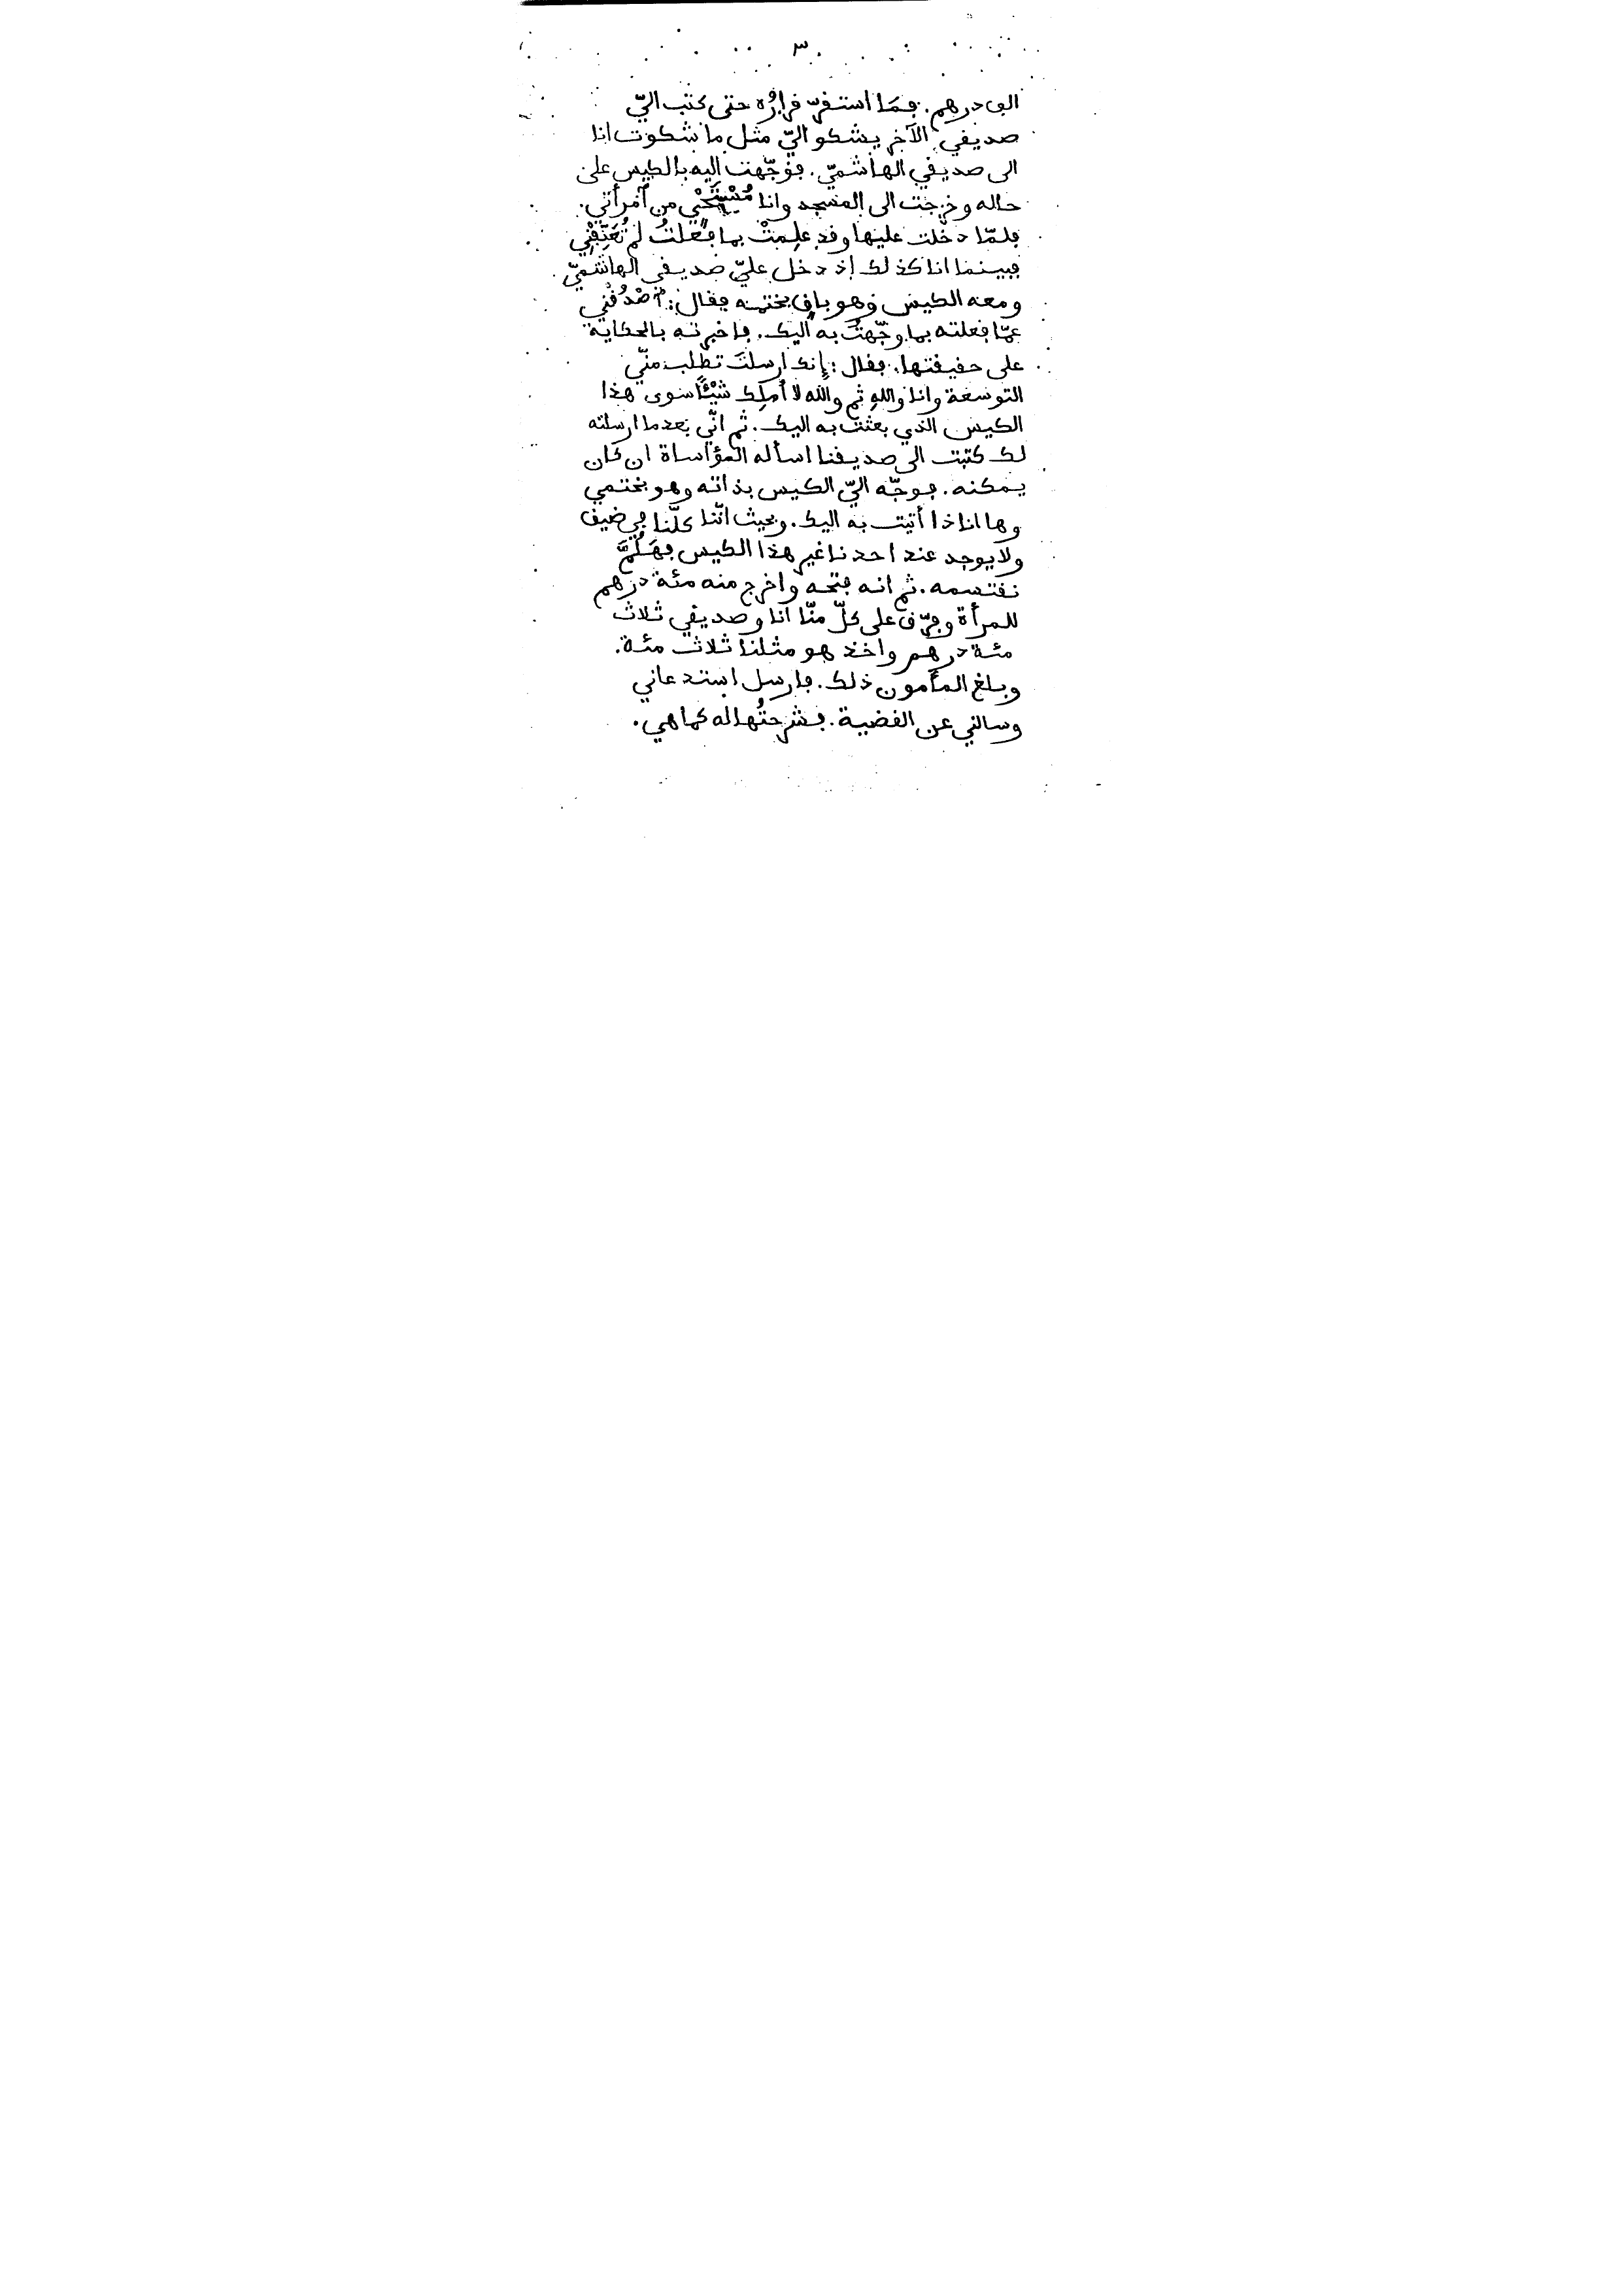 ٣
الف درهم. فما استقرّ قرارُه حتى كتب اليّ
صديقي الآخر يشكو اليّ مثل ما شكوت انا
الى صديقي الهاشميّ. فوجّهت إليه بالكيس على
حاله وخرجت الى المسجد وانا مُسْتَحْيٍ من أمرأتي.
فلمّا دخلت عليها وقد علِمتْ بما فعلتُ لم تُعَنِّفْنِي
فبينما انا كذلك إذ دخل عليّ صديقي الهاشميّ
ومعه الكيس وهو باقٍ بختمه فقال: اصْدُقْني
عمّا فعلته بما وجّهتُ به اليك. فاخبرته بالحكاية
على حقيقتها. فقال: إنك ارسلتَ تطلب منّي
التوسعة وانا واللهِ ثم والله لا أملِك شيْئًا سوى هذا
الكيس الذي بعثت به اليك. ثم انّي بعد ما ارسلته
لك كتبت الى صديقنا اسأله المؤاساة ان كان
يمكنه. فوجّه اليّ الكيس بذاته وهو بختمي
وها انا ذا أتيت به اليك. وبحيث انّنا كلّنا في ضيق
ولا يوجد عند احدنا غير هذا الكيس فهَلُمَّ
نقتسمه. ثم انه فتحه واخرج منه مئة درهم
للمرأة وفرّق على كلّ منّا انا وصديقي ثلاث
مئة درهم واخذ هو مثلنا ثلاث مئة.
وبلغ المأمون ذلك. فارسل استدعاني
وسالني عن القضية. فشرحتُها له كما هي.